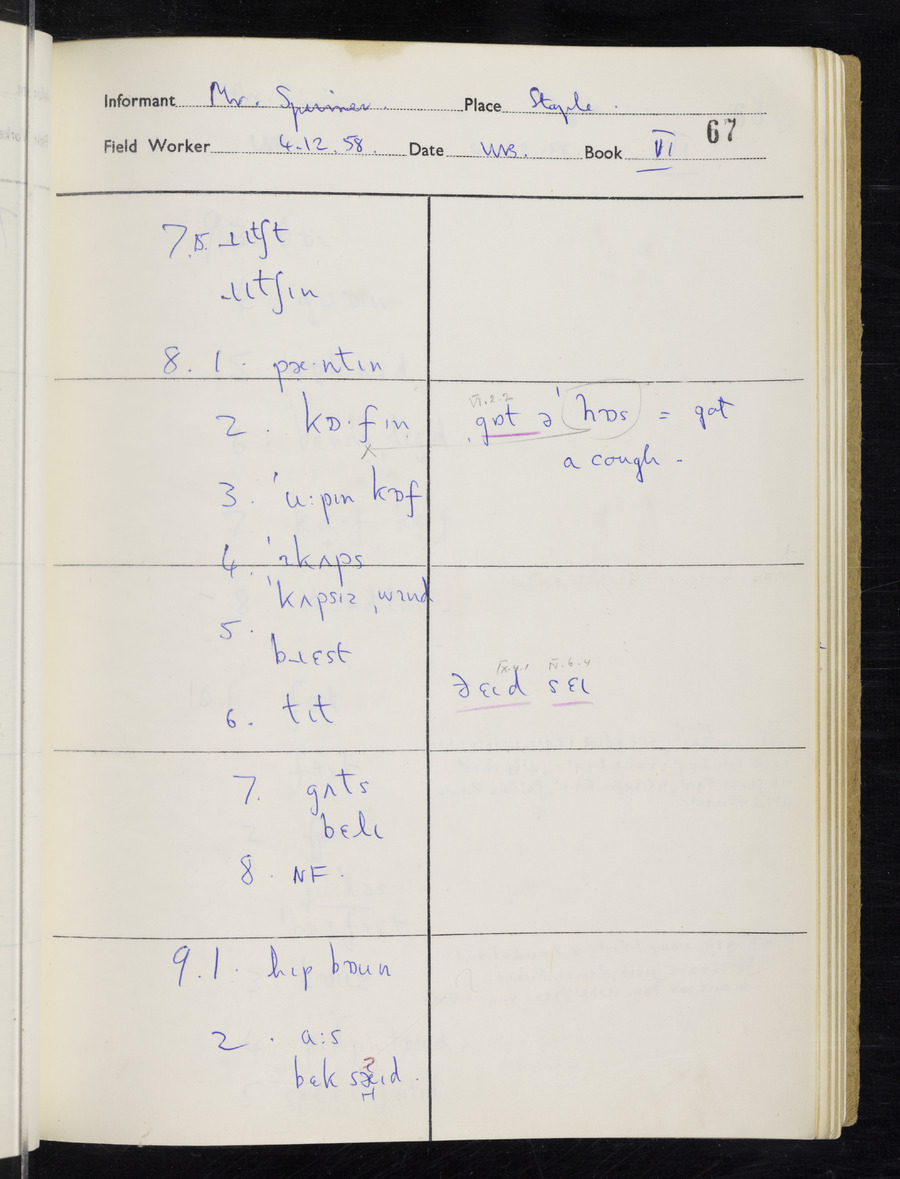 Informant Mr. Spinner. Place Staple.
Field Worker 4.12.58. Date WNB. Book VI 67
7.15 ɹɪtʃt
ɹɪtʃɪn
8. 1. pæ·ntɪn
2. kɒ·fɪn
VI.2.2
gɒt ə ˈhɒs = got
a cough.
3. ˈu:pɪn kɒf
4. ˈɪkʌps
ˈkʌpsɪz ˌwɜnd
5.
bɹɛst
IX.4.1 IV.6.4
ðɛɪd sɛɪ
6. tɪt
7. gʌts
bɛlɪ
8. NF.
9.1. hɪp bɒun
2. a:s
bɛk sæɪd.